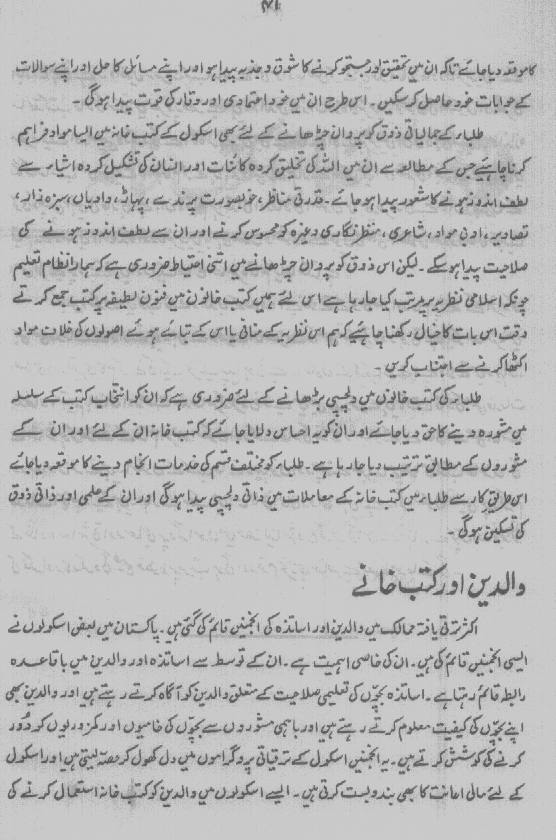 ۴۱
کا موقعہ دیا جائے تاکہ ان میں تحقیق اور جستجو کرنے کا شوق و جذبہ پیدا ہو اور اپنے مسائل کا حل اور اپنے سوالات
کے جوابات خود حاصل کر سکیں ۔ اس طرح ان میں خود اعتمادی اور وقار کی قوت پیدا ہو گی ۔
طلباء کے جمالیاتی ذوق کو پروان چڑھانے کے لئے بھی اسکول کے کتب خانہ میں ایسا مواد فراہم
کرنا چاہیئے جس کے مطالعہ سے ان میں اللہ کی تخلیق کردہ کائنات اور انسان کی تشکیل کردہ اشیاء سے
لطف اندوز ہونے کا شعور پیدا ہو جائے ۔ قدرتی مناظر ، خوبصورت پرندے ، پہاڑ ، وادیاں ، سبزہ زار ،
تصاویر ، ادبی مواد ، شاعری ، منظر نگاری وغیرہ کو محسوس کرنے اور ان سے لطف اندوز ہونے کی
صلاحیت پیدا ہو سکے ۔ لیکن اس ذوق کو پروان چڑھانے میں اتنی احتیاط ضروری ہے کہ ہمارا نظام تعلیم
چونکہ اسلامی نظریہ پر مرتب کیا جا رہا ہے اس لئے ہمیں کتب خانوں میں فنون لطیفہ پر کتب جمع کرتے
وقت اس بات کا خیال رکھنا چاہیئے کہ ہم اس نظریہ کے منافی یا اس کے بتائے ہوئے اصولوں کی خلاف مواد
اکٹھا کرنے سے اجتناب کریں ۔
طلباء کی کتب خانوں میں دلچسپی بڑھانے کے لئے ضروری ہے کہ ان کو انتخاب کتب کے سلسلہ
میں مشورہ دینے کا حق دیا جائے اور ان کو یہ احساس دلایا جائے کہ کتب خانہ ان کے لئے اور ان کے
مشوروں کے مطابق ترتیب دیا جا رہا ہے ۔ طلباء کو مختلف قسم کی خدمات انجام دینے کا موقعہ دیا جائے
اس طریق کار سے طلباء میں کتب خانہ کے معاملات میں ذاتی دلچسپی پیدا ہو گی اور ان کے علمی اور ذاتی ذوق
کی تسکین ہو گی ۔
والدین اور کتب خانے
اکثر ترقی یافتہ ممالک میں والدین اور اساتذہ کی انجمنیں قائم کی گئی ہیں ۔ پاکستان میں بعض اسکولوں نے
ایسی انجمنیں قائم کی ہیں ۔ ان کی خاصی اہمیت ہے ۔ ان کے توسط سے اساتذہ اور والدین میں باقاعدہ
رابطہ قائم رہتا ہے ۔ اساتذہ بچوں کی تعلیمی صلاحیت کے متعلق والدین کو آگاہ کرتے رہتے ہیں اور والدین بھی
اپنے بچوں کی کیفیت معلوم کرتے رہتے ہیں اور باہمی مشوروں سے بچوں کی خامیوں اور کمزوریوں کو دُور
کرنے کی کوشش کرتے ہیں ۔ یہ انجمنیں اسکول کے ترقیاتی پروگراموں میں دل کھول کر حصہ لیتی ہیں اور اسکول
کے لئے مالی اعانت کا بھی بندوبست کرتی ہیں ۔ ایسے اسکولوں میں والدین کو کتب خانہ استعمال کرنے کی